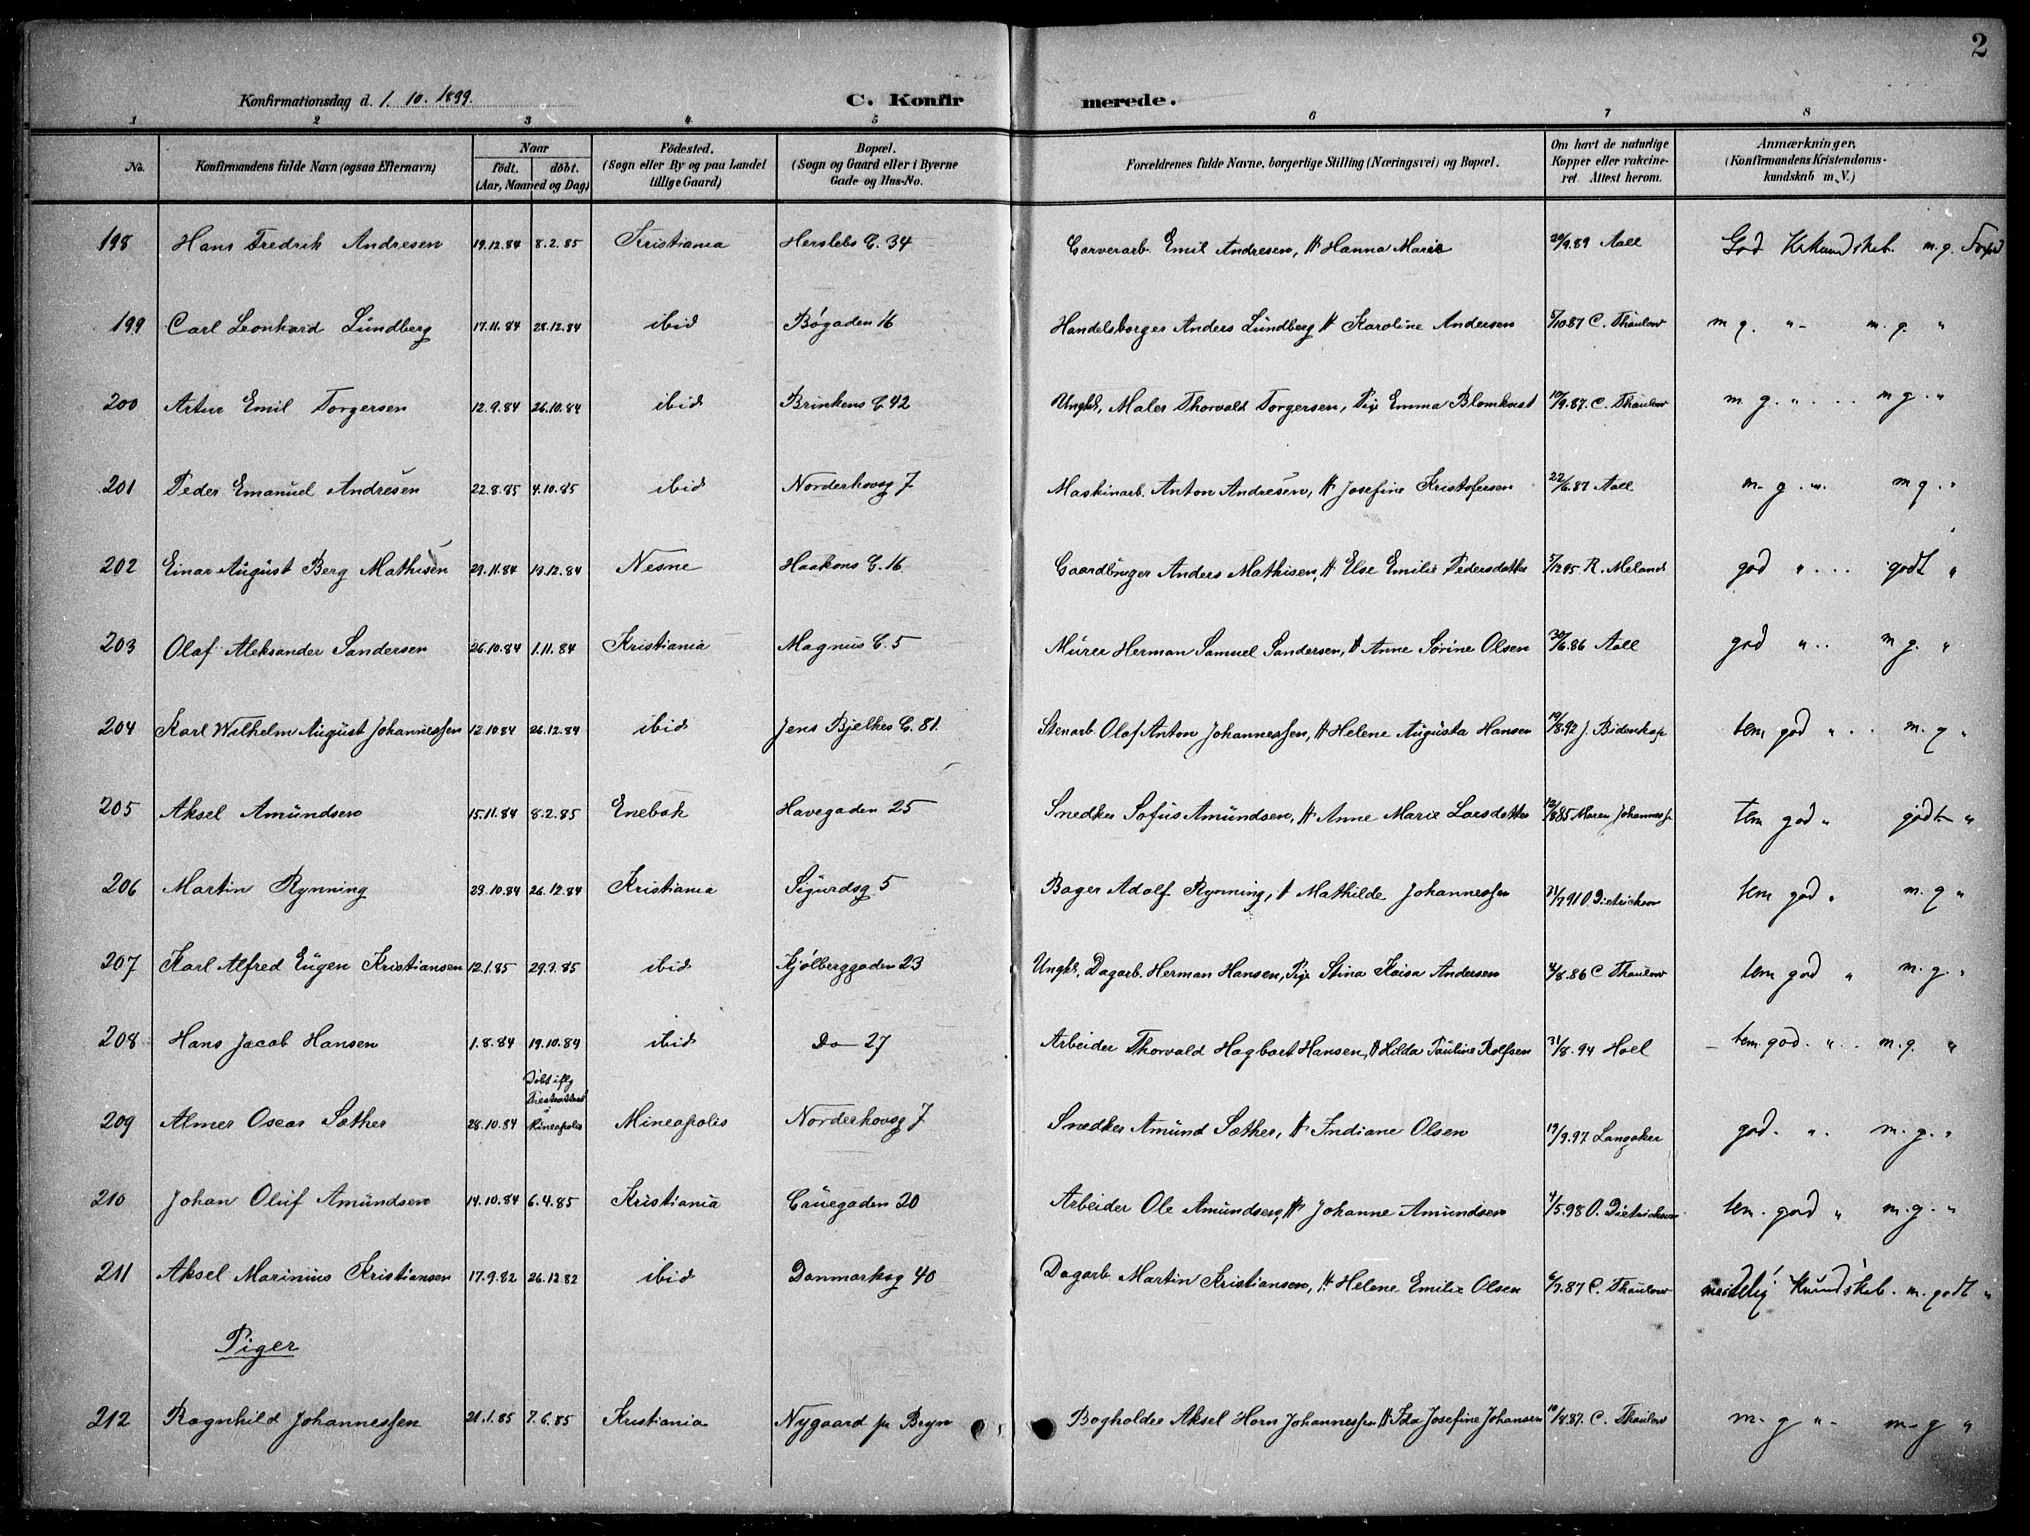 2
Konfirmationsdag d. 1. 10. 1899.
C. Konfirmerede.
1 2 3 4 5 6 7 8
No. Konfirmandens fulde Navn (ogsaa Efternavn) Naar født. døbt. (Aar, Maaned og Dag) Fødested. (Sogn eller By og paa Landet tillige Gaard) Bopæl. (Sogn og Gaard eller i Byerne Gade og Hus-No. Forældrenes fulde Navne, borgerlige Stilling (Næringsvei) og Bopæl. Om havt de naturlige Kopper eller vakcineret. Attest herom. Anmærkninger, (Konfirmandens Kristendomskundskab m. V.)
198 Hans Fredrik Andresen 19.12.84 8.2.85 Kristiania Herslebs G. 34 Garverarb. Emil Andresen, H Hanna Marie 20/9.89 Aall God Kr.kundskab. m. g.
199 Carl Leonhard Lundberg 17.11.84 28.12.84 ibid Bøgaden 16 Handelsborger Anders Lundberg H Karoline Andersen 5/10 87 C. Thaulow m g. " - m. g. "
200 Artur Emil Torgersen 12.9.84 26.10.84 ibid Brinkens G 42 Ungk., Maler Thorvald Torgersen, Pige Emma Blomkvist 10/9.87. C. Thaulow m g. " . . m g. "
201 Peder Emanuel Andresen 22.8.85 4.10.85 ibid Norderhovsg 7 Maskinarb. Anton Andresen, H Josefine Kristofersen 22/6.87 Aall m. g. " m g. "
202 Einar August Berg Mathisen 29.11.84 19.12.84 Nesne Haakons G. 16 Gaardbruger Anders Mathisen, H Else Emilie Pedersdatter 5/12 95 R. Meland god " . . godt "
203 Olaf Aleksander Sandersen 26.10.84 1.11.84 Kristiania Magnus G. 5 Murer Herman Samuel Sandersen, H Anne Sørine Olsen 30/6.86 Aall god " . . m g. "
204 Karl Wilhelm August Johannessen 12.10 84 26.12.84 ibid Jens Bjelkes G. 81. Stenarb. Olaf Anton Johannessen, H Helene Augusta Hansen 19/8.92 J. Bidenkap tem god " . . m. g "
205 Aksel Amundsen 15.11.84 8.2.85 Enebak Havegaden 25 Snedker Sofus Amundsen, H Anne Marie Larsdatter 12/8 85 Maren Johannessen tem god " godt "
206 Martin Rynning 29.10.84 26.12.84 Kristiania Sigurdsg 5 Bager Adolf Rynning, H Mathilde Johannessen 31/7 91 O. Dietrichson tem god " m. g "
207 Karl Alfred Eugen Kristiansen 12.1.85 29.3.85 ibid Kjølberggaden 23 Ungk. Dagarb. Herman Hansen, Pige Stina Kaisa Andersen 4/8.86 C Thaulow tem god " m. g. "
208 Hans Jacob Hansen 1.8.84 19.10.84 ibid Do 27 Arbeider Thorvald Hagbart Hansen, H Hilda Pauline Rolfsen 31/8.94 Hoel tem. god. " . . m. g. "
209 Almer Oscar Sæther 28.10.84 Døbt iflg Presteattest i Mineapolis Mineapolis Norderhovsg 7 Snedker Amund Sæther, H Indiane Olsen 19/9.97 Langaker god. " . m. g. "
210 Johan Oluf Amundsen 14.10.84 6.4.85 Kristiania Gruegaden 20 Arbeider Ole Amundsen, H Johanne Amundsen 4/5.98 O. Dietrichson tem. god " m. g. "
211 Aksel Marinius Kristiansen 17.9.82 26.12.82 ibid Danmarksg 40 Dagarb Martin Kristiansen, H Helene Emilie Olsen 6/7.87 C. Thaulow maadelig Kundskab. m. godt "
Piger
212 Ragnhild Johannessen 21.1.85 7.6.85 Kristiania Nygaard pr Bryn Bogholder Aksel Horn Johannessen H Ida Josefine Johansen 10/8 87. C. Thaulow m. g " - m - g "